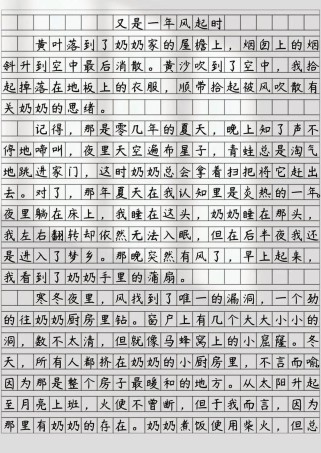 又是一年风起时
黄叶落到了奶奶家的屋檐上，烟囱上的烟
斜升到空中最后消散。黄沙吹到了空中，我拾
起掉落在地板上的衣服，顺带拾起被风吹散有
关奶奶的思绪。
记得，那是零几年的夏天，晚上知了声不
停地啼叫，夜里天空遍布星子，青蛙总是淘气
地跳进家门，这时奶奶总会拿着扫把将它赶出
去。对了，那年夏天在我认知里是炎热的一年。
夜里躺在床上，我睡在这头，奶奶睡在那头，
我左右翻转却依然无法入眠，但在后半夜我还
是进入了梦乡。那晚突然有风了，早上起来，
我看到了奶奶手里的蒲扇。
寒冬夜里，风找到了唯一的漏洞，一个劲
的往奶奶厨房里钻。窗户上有几个大大小小的
洞，数不太清，但就像马蜂窝上的小窟窿。冬
天，所有人都挤在奶奶的小厨房里，不言而喻，
因为那是整个房子最暖和的地方。从太阳升起
至月亮上班，火使不曾断，但于我而言，因为
那里有奶奶的存在。奶奶煮饭使用柴火，但总